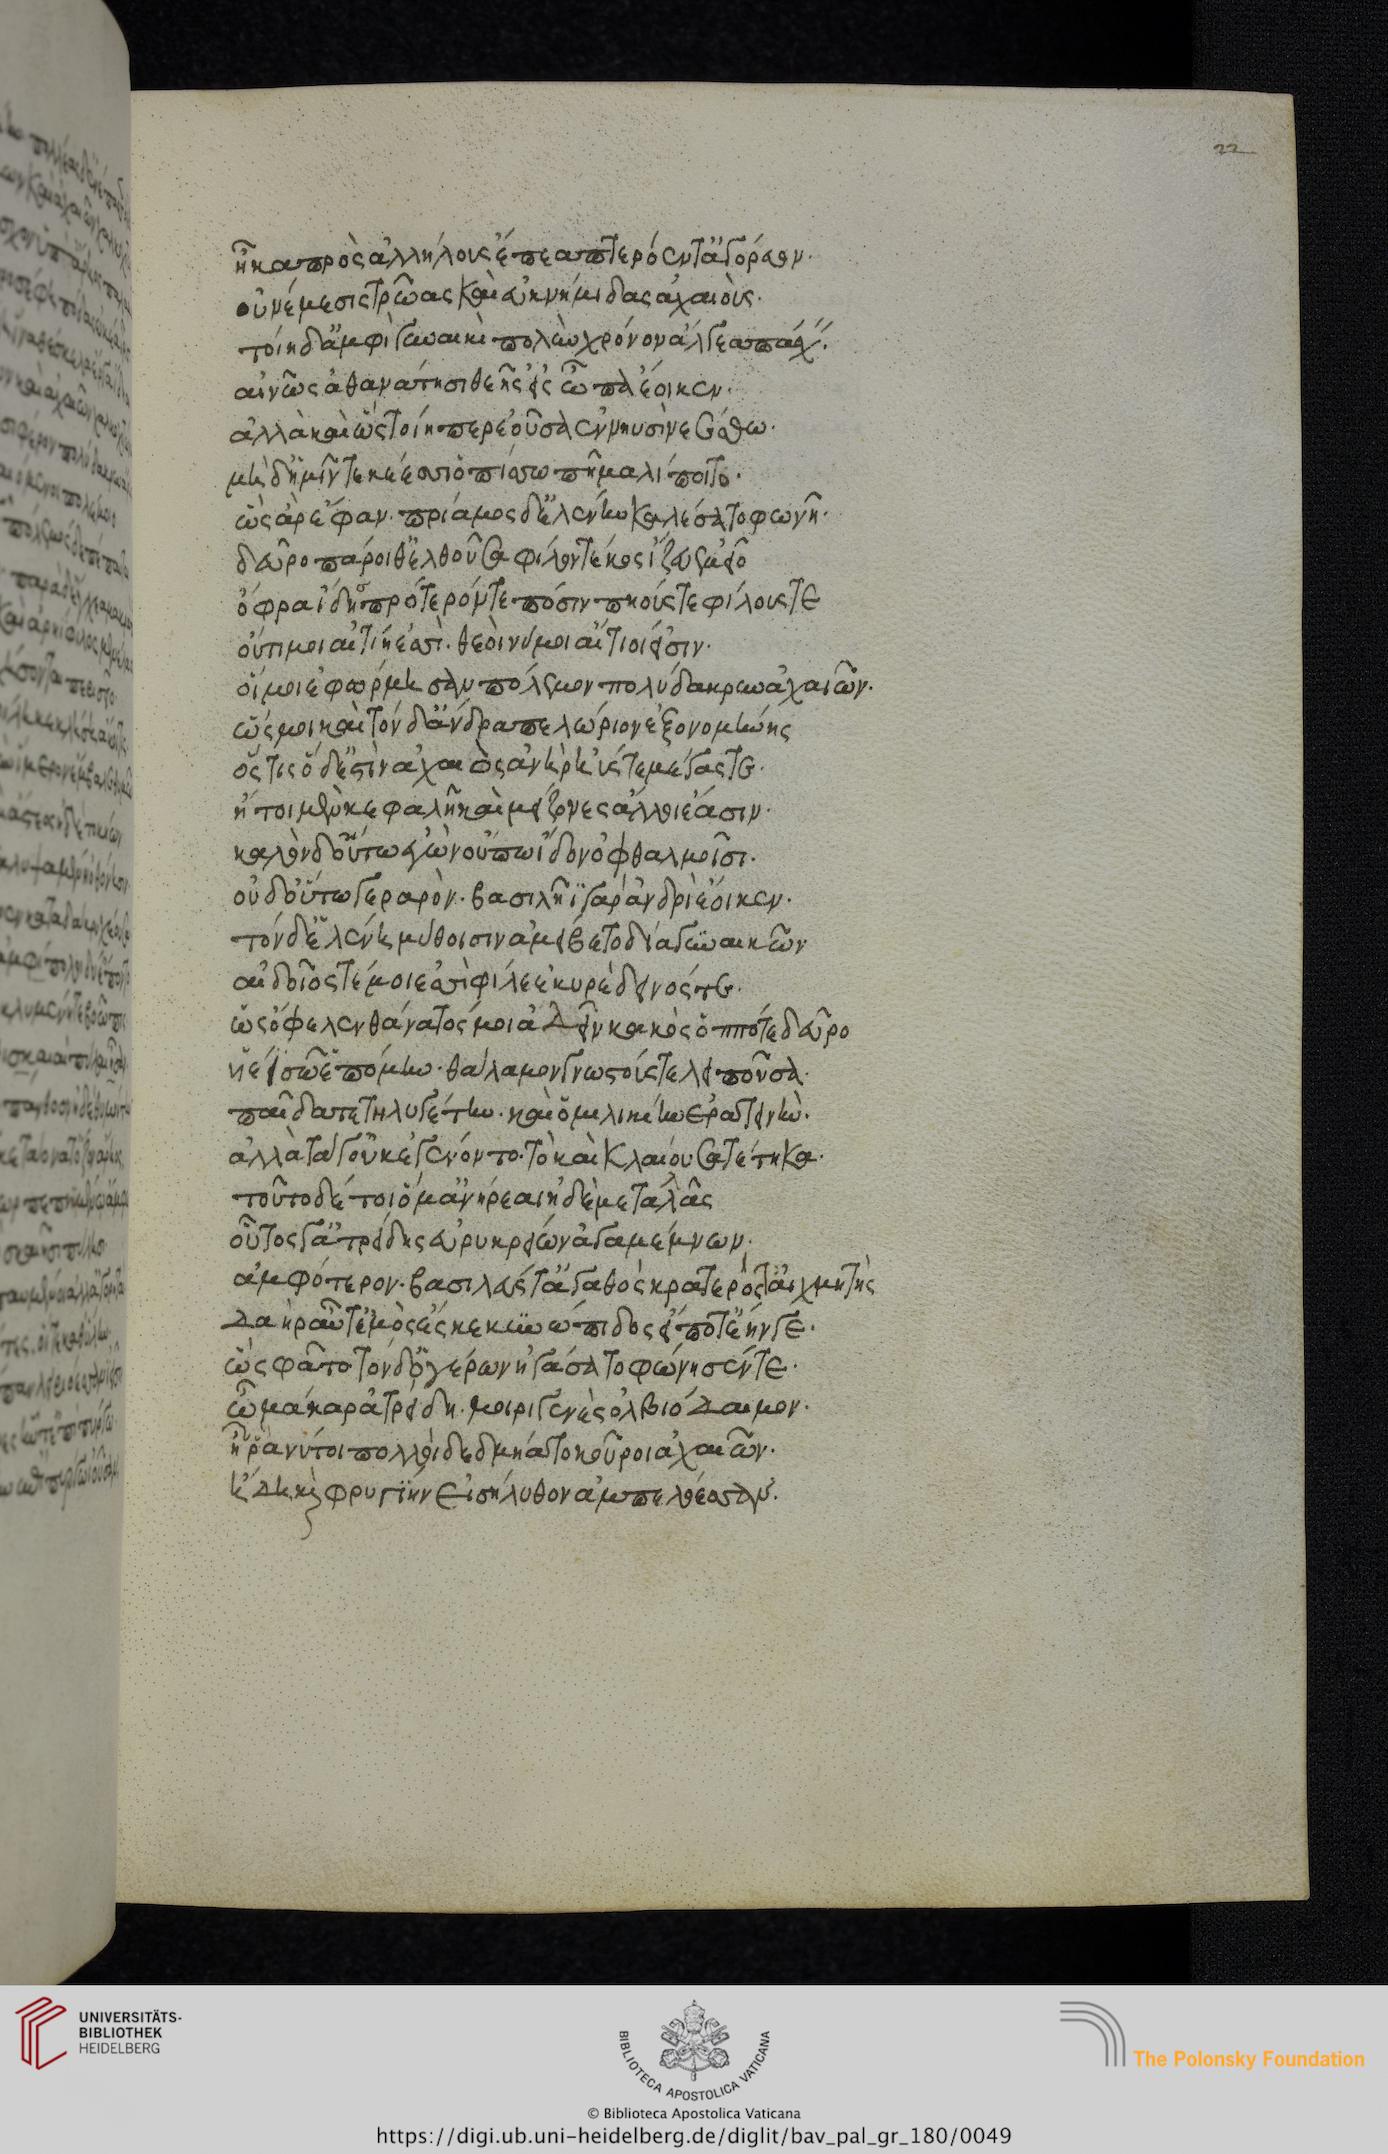 22
ἦκα πρὸς ἀλλήλους ἔπεα πτερόεντ' ἀγόρευον·
οὐ νέμεσις τρῶας καὶ ἐυκνήμιδας ἀχαιοὺς·
τοίηδ' ἀμφὶ γυναικὶ πολὺν χρόνον ἄλγεα πάσχειν·
αἰνῶς ἀθανάτησι θεῆς εἰς ὦπα ἔοικεν·
ἀλλὰ καὶ ὧς τοίη περ ἐοῦσα ἐν νηυσὶ νεέσθω·
μὴ δ' ἡμῖν τεκέεσσι τ' ὀπίσσω πῆμα λίποιτο·
ὣς ἄρ' ἔφαν· πρίαμος δ' ἑλένην καλέσατο φωνῆ·
δεῦρο πάροιθ' ἐλθοῦσα φίλον τέκος ἵζευ ἐμεῖο
ὄφρα ἴδη πρότερόν τε πόσιν πηούς τε φίλους τε
οὔτι μοι αἰτίη ἐσσὶ· θεοί νύ μοι αἴτιοι εἰσιν·
οἵ μοι ἐφώρμησαν πόλεμον πολύδακρυν ἀχαιῶν·
ὥς μοι καὶ τόνδ' ἄνδρα πελώριον ἐξονομήνης
ὅς τις ὅδ' ἐστὶν ἀχαιὸς ἀνὴρ ἠΰς τε μέγας τε·
ἤτοι μὲν κεφαλῆ καὶ μείζονες ἄλλοι ἔασιν·
καλὸν δ' οὕτω ἐγὼν οὔπω ἴδον ὀφθαλμοῖσι·
οὐδ' οὕτω γεραρὸν· βασιλῆϊ γὰρ ἀνδρὶ ἔοικεν·
τόνδ' ἑλένη μύθοισιν ἀμείβετο δῖα γυναικῶν
αἰδοῖός τέ μοι ἐσσὶ φίλε ἑκυρὲ δεινός τε·
ὡς ὄφελεν θάνατός μοι ἁδεῖν κακὸς ὁππότε δεῦρο
υἱέϊ σῷ ἑπόμην· θάλαμον γνωτούς τε λιποῦσα·
παῖδά τε τηλυγέτην· καὶ ὁμηλικίην ἐρατεινὴν·
ἀλλὰ τά γ' οὐκ ἐγένοντο· τὸ καὶ κλαίουσα τέτηκα·
τοῦτο δέ τοι ἐρέω ὅ μ' ἀνήρεαι ἠδὲ μεταλλᾶς
οὗτός γ' ἀτρείδης εὐρυκρείων ἀγαμέμνων·
ἀμφότερον· βασιλεύς τ' ἀγαθὸς κρατερός τ' αἰχμητὴς
δαὴρ αὖτ' ἐμὸς ἔσκε κυνώπιδος εἴποτ' ἔην γε·
ὣς φάτο· τόνδ' ὁ γέρων ἠγάσατο φώνησέν τε·
ὦ μάκαρ ἀτρείδη· μοιρηγενὲς ὀλβιόδαιμον·
ἦ ῥά νύ τοι πολλοὶ δεδμήατο κοῦροι ἀχαιῶν·
ἤδη καὶ φρυγίην εἰσήλυθον ἀμπελόεσσαν·
UNIVERSITÄTS-
BIBLIOTHEK
HEIDELBERG
BIBLIOTECA APOSTOLICA VATICANA
The Polonsky Foundation
© Biblioteca Apostolica Vaticana
https://digi.ub.uni-heidelberg.de/diglit/bav_pal_gr_180/0049